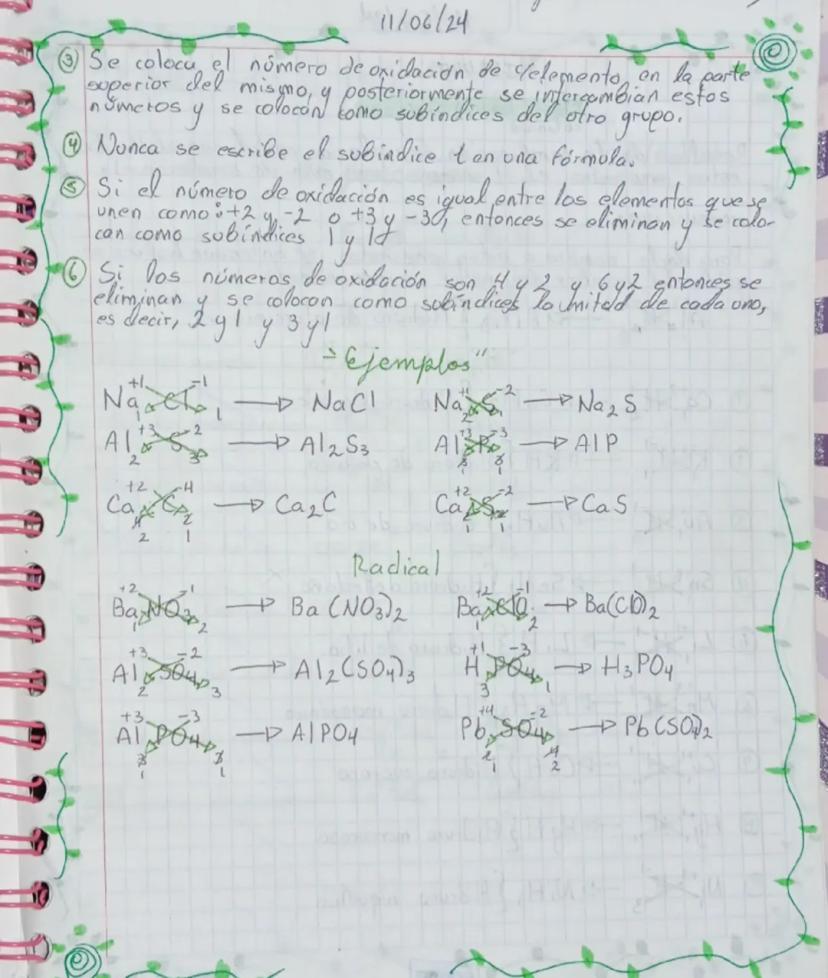 11/06/24
③ Se coloca el número de oxidación de c/elemento en la parte
superior del mismo, y posteriormente se intercambian estos
números y se colocan como subíndices del otro grupo.
④ Nunca se escribe el subíndice 1 en una fórmula.
⑤ Si el número de oxidación es igual entre los elementos que se
unen como: +2 y -2 o +3 y -3, entonces se eliminan y se colo-
can como subíndices 1 y 1
⑥ Si los números de oxidación son 4 y 2 y 6 y 2 entonces se
eliminan y se colocan como subíndices la mitad de cada uno,
es decir, 2 y 1 y 3 y 1
"Ejemplos"
Na⁺¹₁ Cl⁻¹₁ → NaCl Na⁺¹₂ S⁻² → Na₂S
Al⁺³₂ S⁻²₃ → Al₂S₃ Al⁺³ P⁻³ → AlP
Ca⁺² C⁻⁴ → Ca₂C Ca⁺² S⁻² → CaS
4 2 1 1
2 1
Radical
Ba⁺²₁ NO₃⁻¹₂ → Ba(NO₃)₂ Ba⁺²₁ ClO⁻¹₂ → Ba(ClO)₂
Al⁺³₂ SO₄⁻²₃ → Al₂(SO₄)₃ H⁺¹₃ PO₄⁻³₁ → H₃PO₄
Al⁺³ PO₄⁻³ → AlPO₄ Pb⁺⁴ SO₄⁻² → Pb(SO₄)₂
3 3 2 4
1 1 1 2